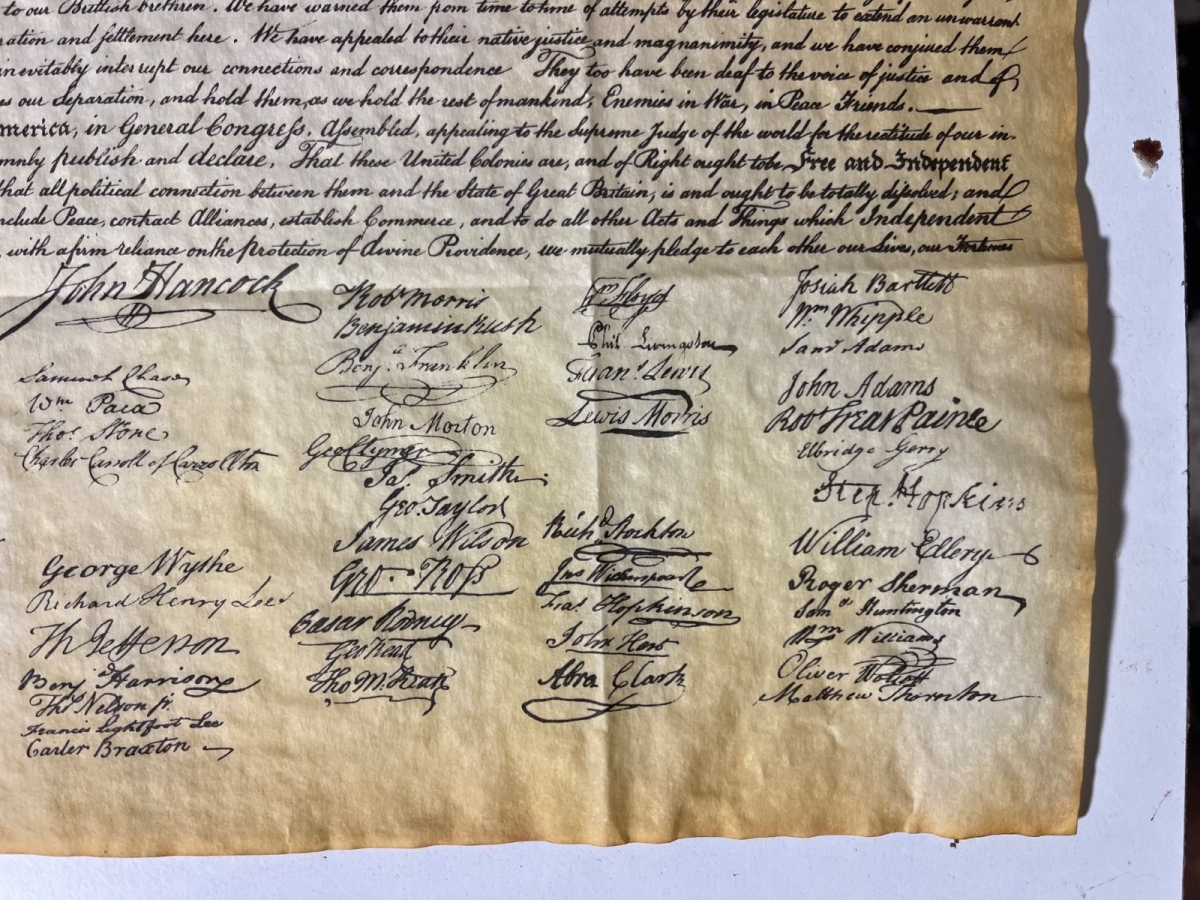 to our British brethren. We have warned them from time to time of attempts by their legislature to extend an unwarrant
ration and settlement here. We have appealed to their native justice and magnanimity, and we have conjured them
inevitably interrupt our connections and correspondence They too have been deaf to the voice of justice and of
es our Separation, and hold them, as we hold the rest of mankind, Enemies in War, in Peace Friends.
merica, in General Congress, Assembled, appealing to the Supreme Judge of the world for the rectitude of our in-
mnly publish and declare, That these United Colonies are, and of Right ought to be Free and Independent
that all political connection between them and the State of Great Britain, is and ought to be totally dissolved; and
nclude Peace, contract Alliances, establish Commerce, and to do all other Acts and Things which Independent
, with a firm reliance on the Protection of divine Providence, we mutually pledge to each other our Lives, our Fortunes
John Hancock
Samuel Chase
Wm Paca
Thos Stone
Charles Carroll of Carrollton
George Wythe
Richard Henry Lee
Th Jefferson
Benj Harrison
Thos Nelson jr.
Francis Lightfoot Lee
Carter Braxton
Robt Morris
Benjamin Rush
Benja. Franklin
John Morton
Geo Clymer
Jas. Smith.
Geo. Taylor
James Wilson
Geo. Ross
Caesar Rodney
Geo Read
Tho M. Kean
Wm Floyd
Phil. Livingston
Frans. Lewis
Lewis Morris
Richd Stockton
Jno Witherspoon
Fras. Hopkinson
John Hart
Abra Clark
Josiah Bartlett
Wm Whipple
Saml Adams
John Adams
Robt Treat Paine
Elbridge Gerry
Step. Hopkins
William Ellery
Roger Sherman
Saml Huntington
Wm Williams
Oliver Wolcott
Matthew Thornton